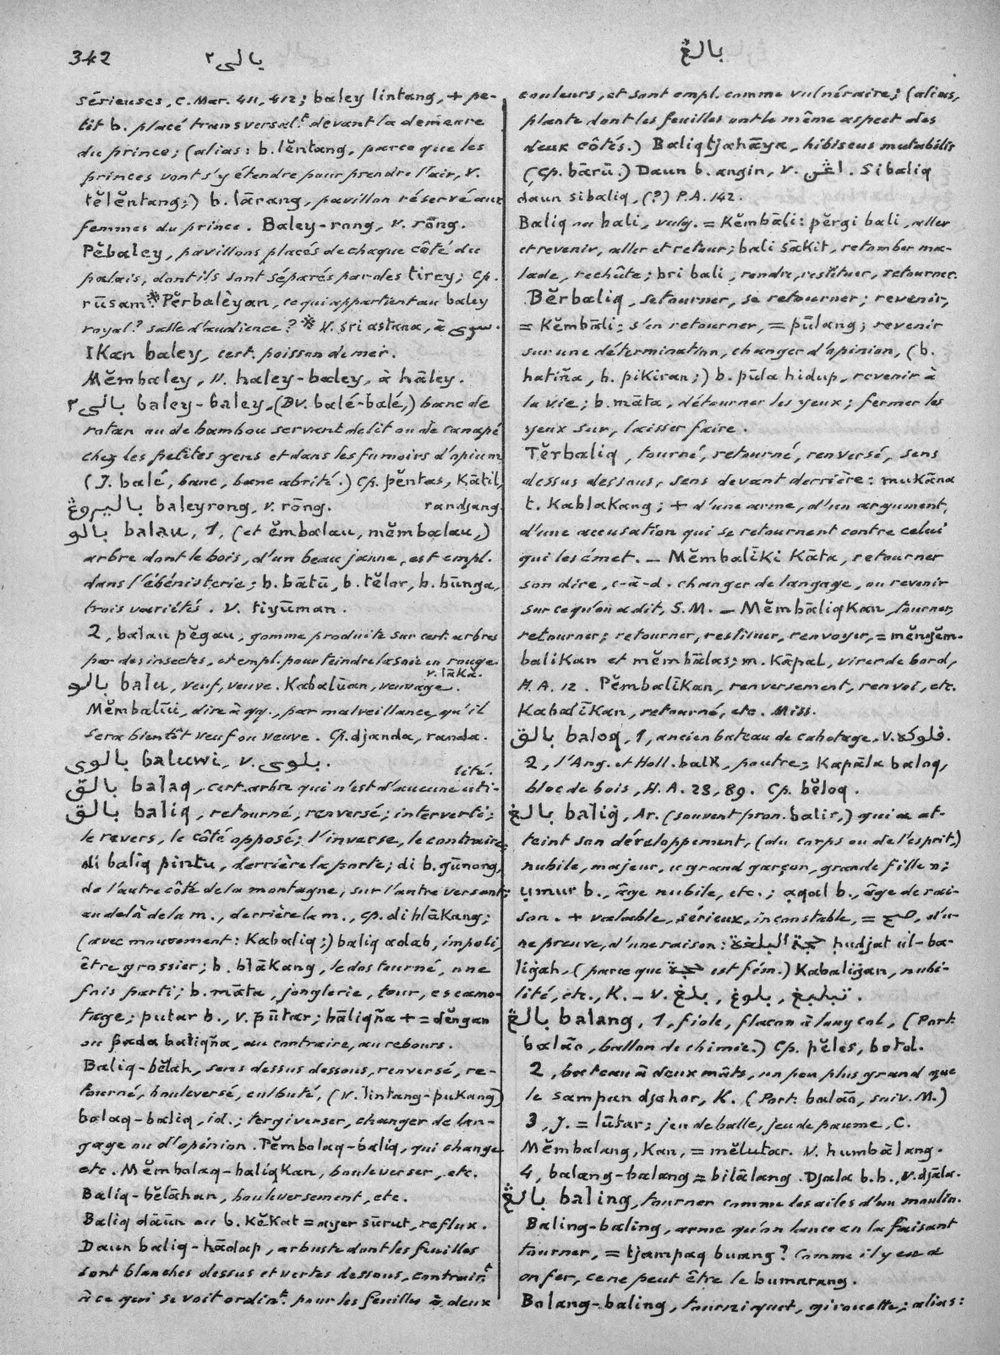 342 بالى ٢ بالڠ
sérieuses, C. Mar. 411, 412; baley lintang, + pe-
tit b. placé transversal.t devant la demeure
du prince; (alias: b. lĕntang, parce que les
princes vont s'y étendre pour prendre l'air, v.
tĕlĕntang;) b. lārang, pavillon réservé aux
femmes du prince. Baley-rong, v. rōng.
Pĕbaley, pavillons placés de chaque côté du
palais, dont ils sont séparés par des tirey; Cp.
rūsam. * Pĕrbalēyan, ce qui appartient au baley
royal? salle d'audience? * V. sri astana, à سرى.
Ikan baley, cert. poisson de mer.
Mĕmbaley, v. haley-baley, à hāley.
بالى ٢ baley-baley, (Dv. balé-balé,) banc de
rotan ou de bambou servant de lit ou de canapé
chez les petites gens et dans les fumoirs d'opium
(J. balé, banc, banc abrité.) Cp. pĕntas, Kātil,
randjang.
باليروڠ baleyrong, v. rōng.
بالو balau, 1, (et ĕmbalau, mĕmbalau,)
arbre dont le bois, d'un beau jaune, est empl.
dans l'ébénisterie; b. bātū, b. tĕlor, b. būnga,
trois variétés. v. tiyūman.
2, balau pĕgau, gomme produite sur cert. arbres
par des insectes, et empl. pour teindre la soie en rouge.
v. lāka.
بالو balu, veuf, veuve. Kabalūan, veuvage.
Mĕmbalūi, dire à qq., par malveillance, qu'il
sera bientôt veuf ou veuve. Cp. djanda, randa.
بالوى baluwi, v. بلوى.
بالق balaq, cert. arbre qui n'est d'aucune uti-
lité.
بالق baliq, retourné, renversé; interverti;
le revers, le côté opposé; l'inverse, le contraire
di baliq pintu, derrière la porte; di b. gūnong,
de l'autre côté de la montagne, sur l'autre versant;
au delà de la m., derrière la m., Cp. di blākang;
(avec mouvement: Kabaliq;) baliq adab, impoli,
être grossier; b. blākang, le dos tourné, une
fois parti; b. māta, jonglerie, tour, escamo-
tage; putar b., v. pūtar; bāliqña + = dĕngan
ou pada baliqña, au contraire, au rebours.
Baliq-bĕlah, sens dessus dessous, renversé, re-
tourné, bouleversé, culbuté, (v. lintang-pukang)
balaq-baliq, id.; tergiverser, changer de lan-
gage ou d'opinion. Pĕmbolaq-baliq, qui change
etc. Mĕmbalaq-baliqkan, bouleverser, etc.
Baliq-bĕlāhan, bouleversement, etc.
Baliq dāūn ou b. kĕkat = ayer sūrut, reflux.
Daun baliq-hādap, arbuste dont les feuilles
sont blanches dessus et vertes dessous, contrair.t
à ce qui se voit ordin.t pour les feuilles à deux
couleurs, et sont empl. comme vulnéraire; (alias,
plante dont les feuilles ont le même aspect des
deux côtés.) Baliq tjahāya, hibiscus mutabilis
(Cp. bārū.) Daun b. angin, v. اڠين. Sibaliq
daun sibaliq, (?) P.A. 142.
Baliq ou bali, vulg. = Kĕmbāli: pĕrgi bali, aller
et revenir, aller et retour; bali sakit, retomber ma-
lade, rechûte; bri bali, rendre, restituer, retourner.
Bĕrbaliq, se tourner, se retourner; revenir,
= Kĕmbāli; s'en retourner, = pūlang; revenir
sur une détermination, changer d'opinion, (b.
hatiña, b. pikiran;) b. pūla hidup, revenir à
la vie; b. māta, détourner les yeux; fermer les
yeux sur, laisser faire.
Tĕrbaliq, tourné, retourné, renversé, sens
dessus dessous, sens devant derrière: mukāna
t. Kablakang; + d'une arme, d'un argument,
d'une accusation qui se retournent contre celui
qui les émet. — Mĕmbalīki Kāta, retourner
son dire, c-à-d. changer de langage, ou revenir
sur ce qu'on a dit, S.M. — Mĕmbāliqkan, tourner,
retourner; retourner, restituer, renvoyer, = mĕngĕm-
balikan et mĕmbālas; m. Kāpal, virer de bord,
H.A. 12. Pĕmbalīkan, renversement, renvoi, etc.
Kabalīkan, retourné, etc. Miss.
بالق baloq, 1, ancien bateau de cabotage, v. فلوكه.
2, l'Ang. et Holl. balk, poutre; Kapāla baloq,
bloc de bois, H.A. 28, 89. Cp. bĕloq.
بالغ baliġ, Ar. (souvent pron. balir,) qui a at-
teint son développement, (du corps ou de l'esprit,)
nubile, majeur, «grand garçon, grande fille»;
umur b., âge nubile, etc.; aqal b., âge de rai-
son. + valable, sérieux, incontestable, = صح, d'u-
ne preuve, d'une raison: حجة البلغة hudjat ul-ba-
liġah, (parce que حجة est fém.) Kabaliġan, nubi-
lité, etc., K. — v. بلغ, بلوغ, تبليغ.
بالڠ balang, 1, fiole, flacon à long col, (Port.
balāo, ballon de chimie.) Cp. pĕles, botol.
2, bateau à deux mâts, un peu plus grand que
le sampan djohor, K. (Port. balāo, suiv. M.)
3, J. = lūtar; jeu de balle, jeu de paume, C.
Mĕmbalang, Kan, = mĕlutar. V. humbālang.
4, balang-balang = bilālang. Djala b.b., v. djāla.
بالڠ baling, tourner comme les ailes d'un moulin.
Baling-baling, arme qu'on lance en la faisant
tourner, = tjampaq buang? Comme il y en a
en fer, ce ne peut être le bumarang.
Bolang-baling, tourniquet, girouette; alias: